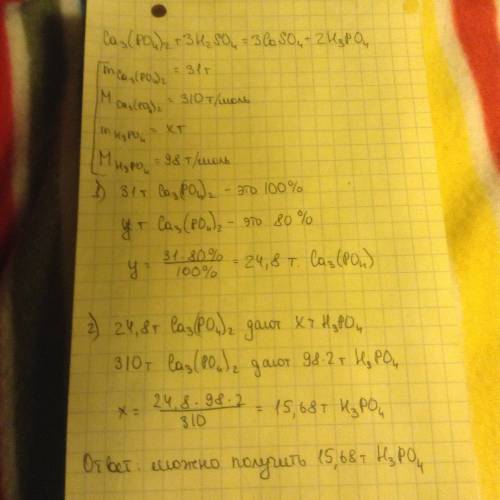 Ca₃(PO₄)₂ + 3H₂SO₄ = 3CaSO₄ + 2H₃PO₄
m Ca₃(PO₄)₂ = 31т
M Ca₃(PO₄)₂ = 310 т/моль
m H₃PO₄ = xт
M H₃PO₄ = 98 т/моль
1) 31т Ca₃(PO₄)₂ - это 100%
y т Ca₃(PO₄)₂ - это 80%
y = 31·80% / 100% = 24,8 т. Ca₃(PO₄)
2) 24,8т Ca₃(PO₄)₂ дают xт H₃PO₄
310т Ca₃(PO₄)₂ дают 98·2т H₃PO₄
x = 24,8·98·2 / 310 = 15,68т H₃PO₄
Ответ: можно получить 15,68т H₃PO₄